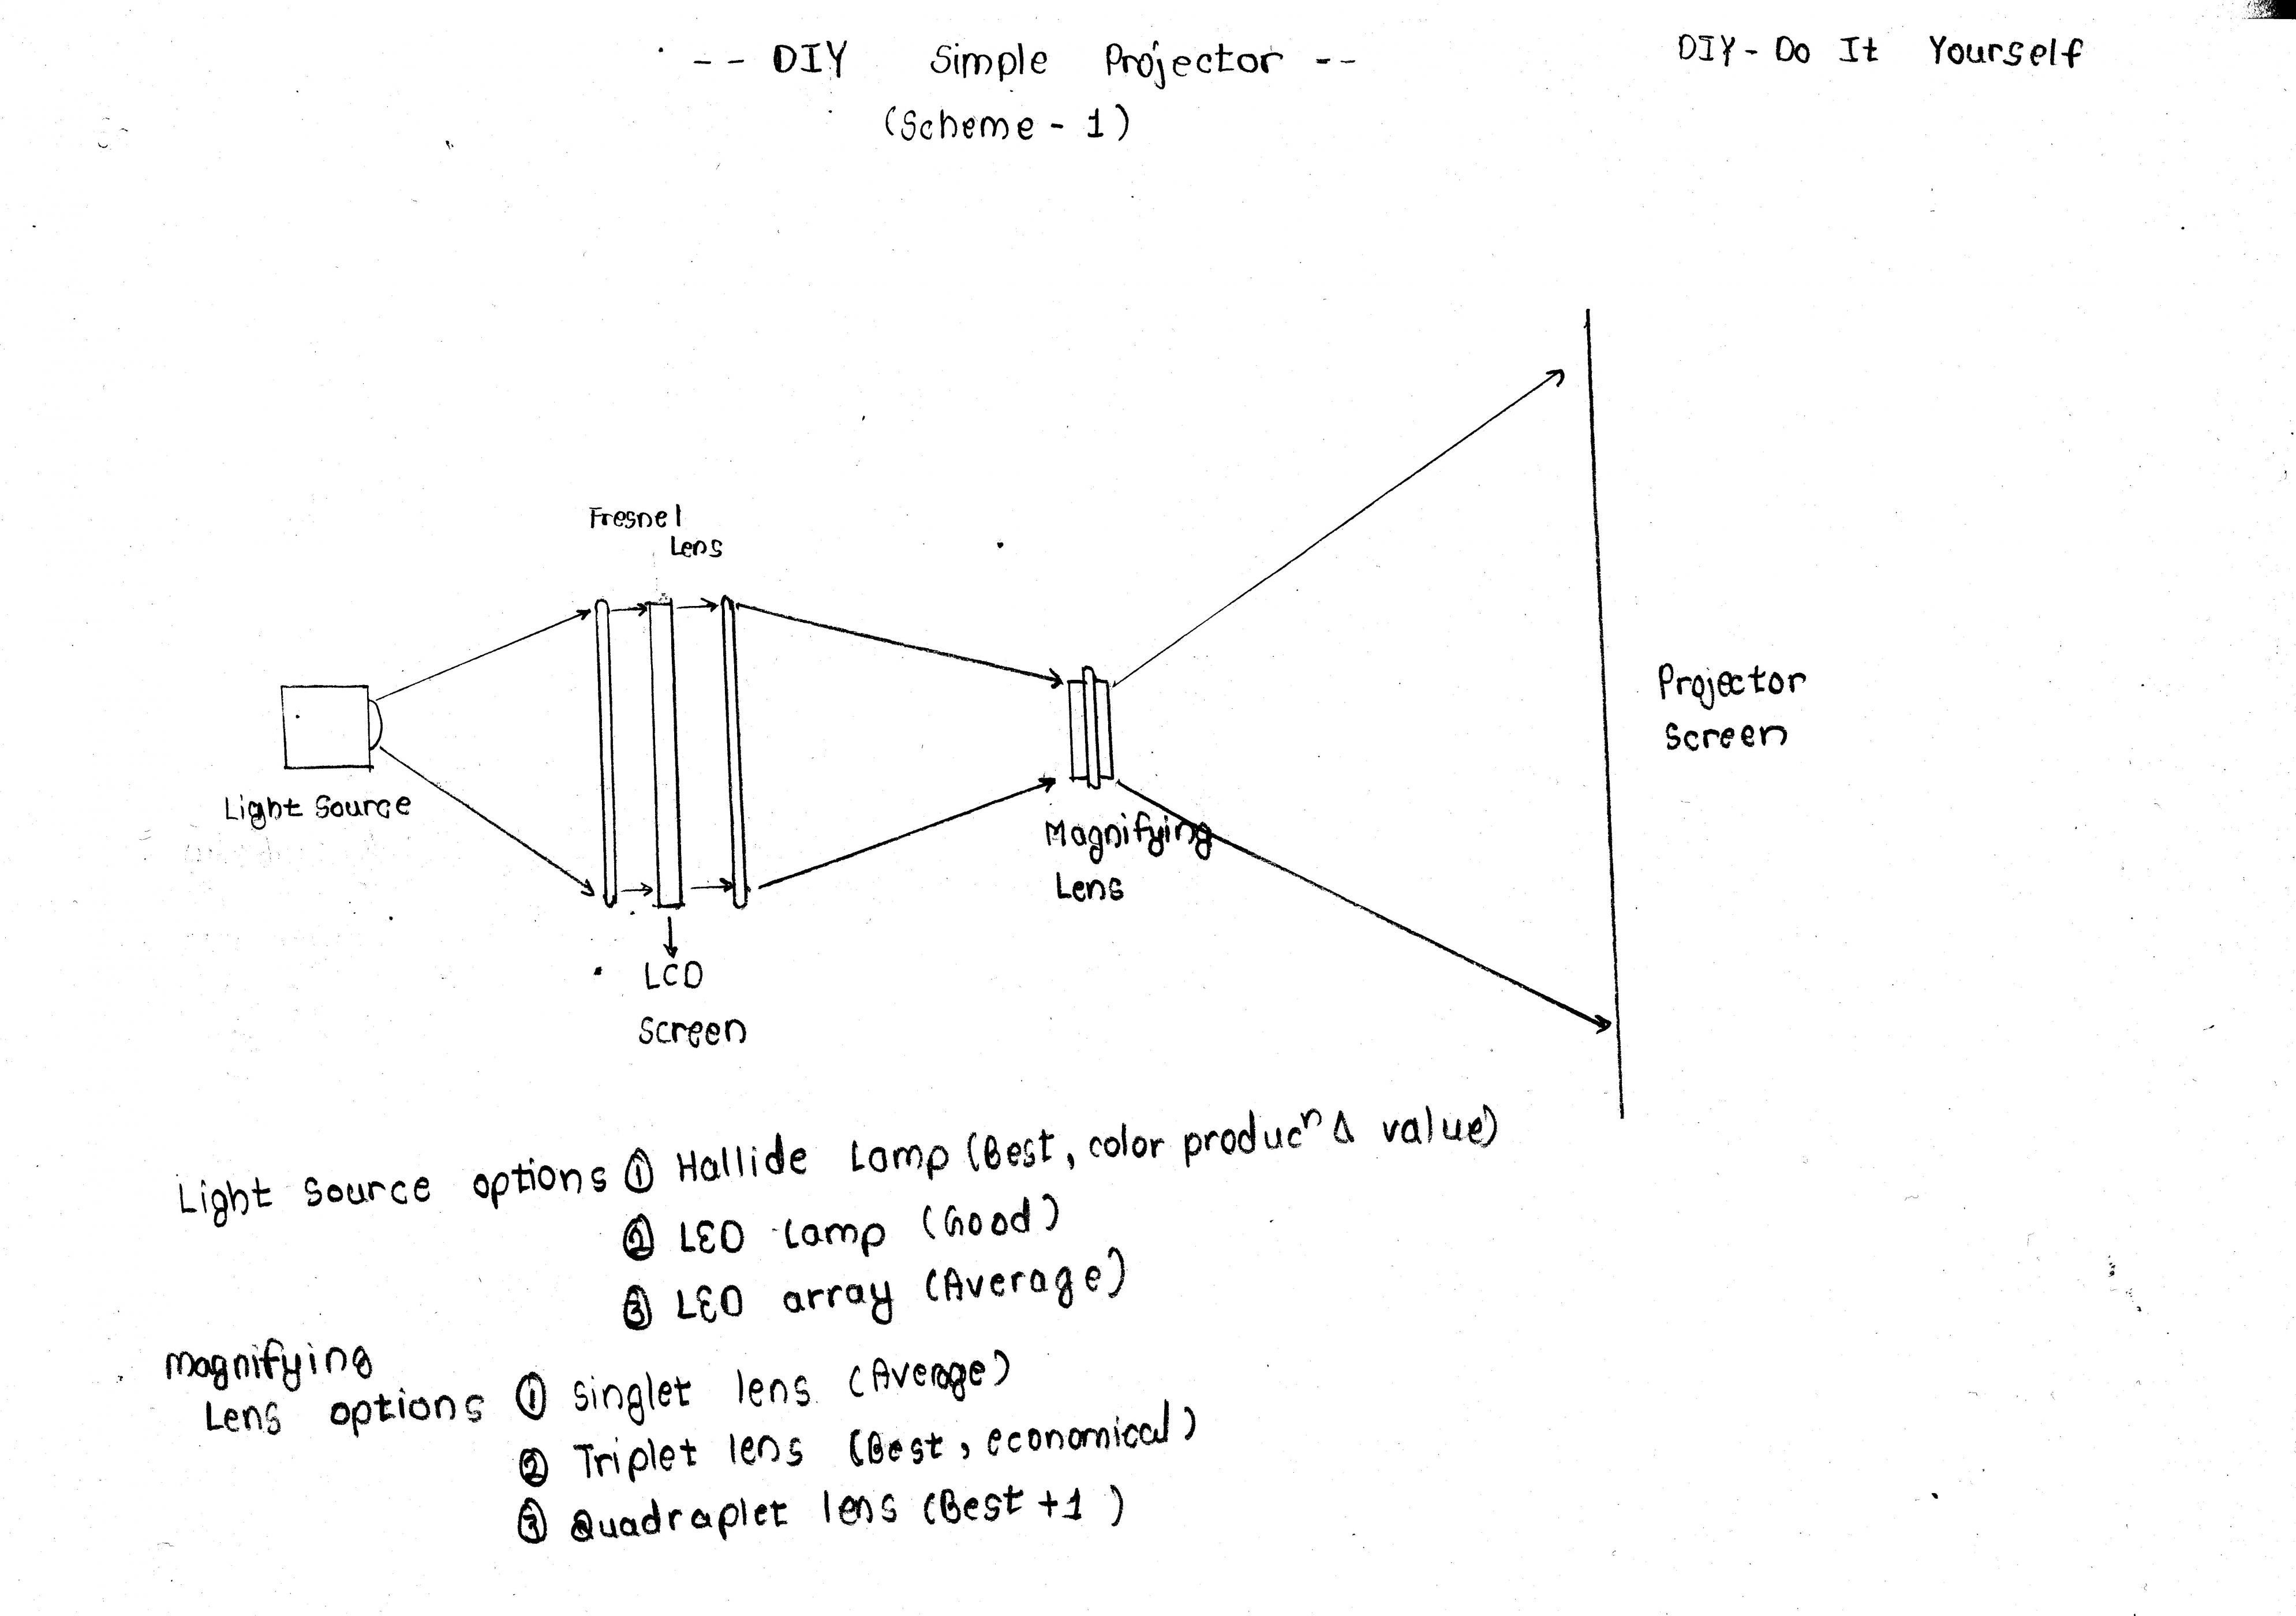 -- DIY Simple Projector --
DIY - Do It Yourself
(Scheme - 1)
Fresnel
Lens
Light Source
Projector
Screen
Magnifying
Lens
LCD
Screen
Light Source options ① Hallide Lamp (Best, color producⁿ & value)
② LED Lamp (Good)
③ LED array (Average)
Magnifying
Lens options ① Singlet lens (Average)
② Triplet lens (Best, economical)
③ Quadraplet lens (Best +1)